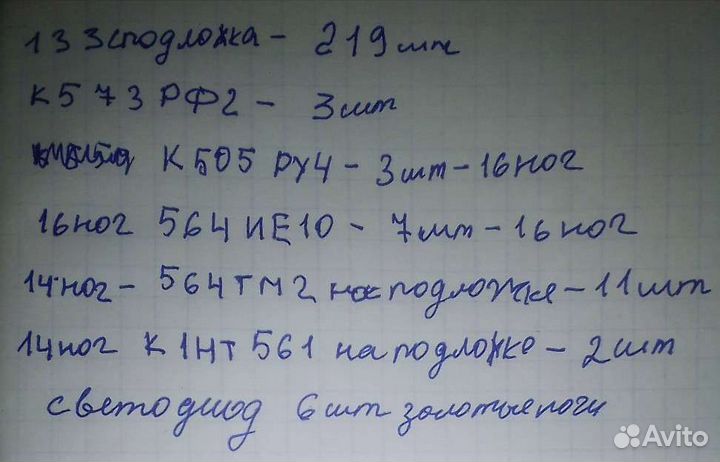 133сподложка - 219 шт
К573РФ2 - 3шт
К505РУ4 - 3шт - 16ног
16ног 564ИЕ10 - 7шт - 16ног
14ног - 564ТМ2 на подложке - 11шт
14ног К1НТ561 на подложке - 2шт
светодиод 6шт золотые ноги
Avito